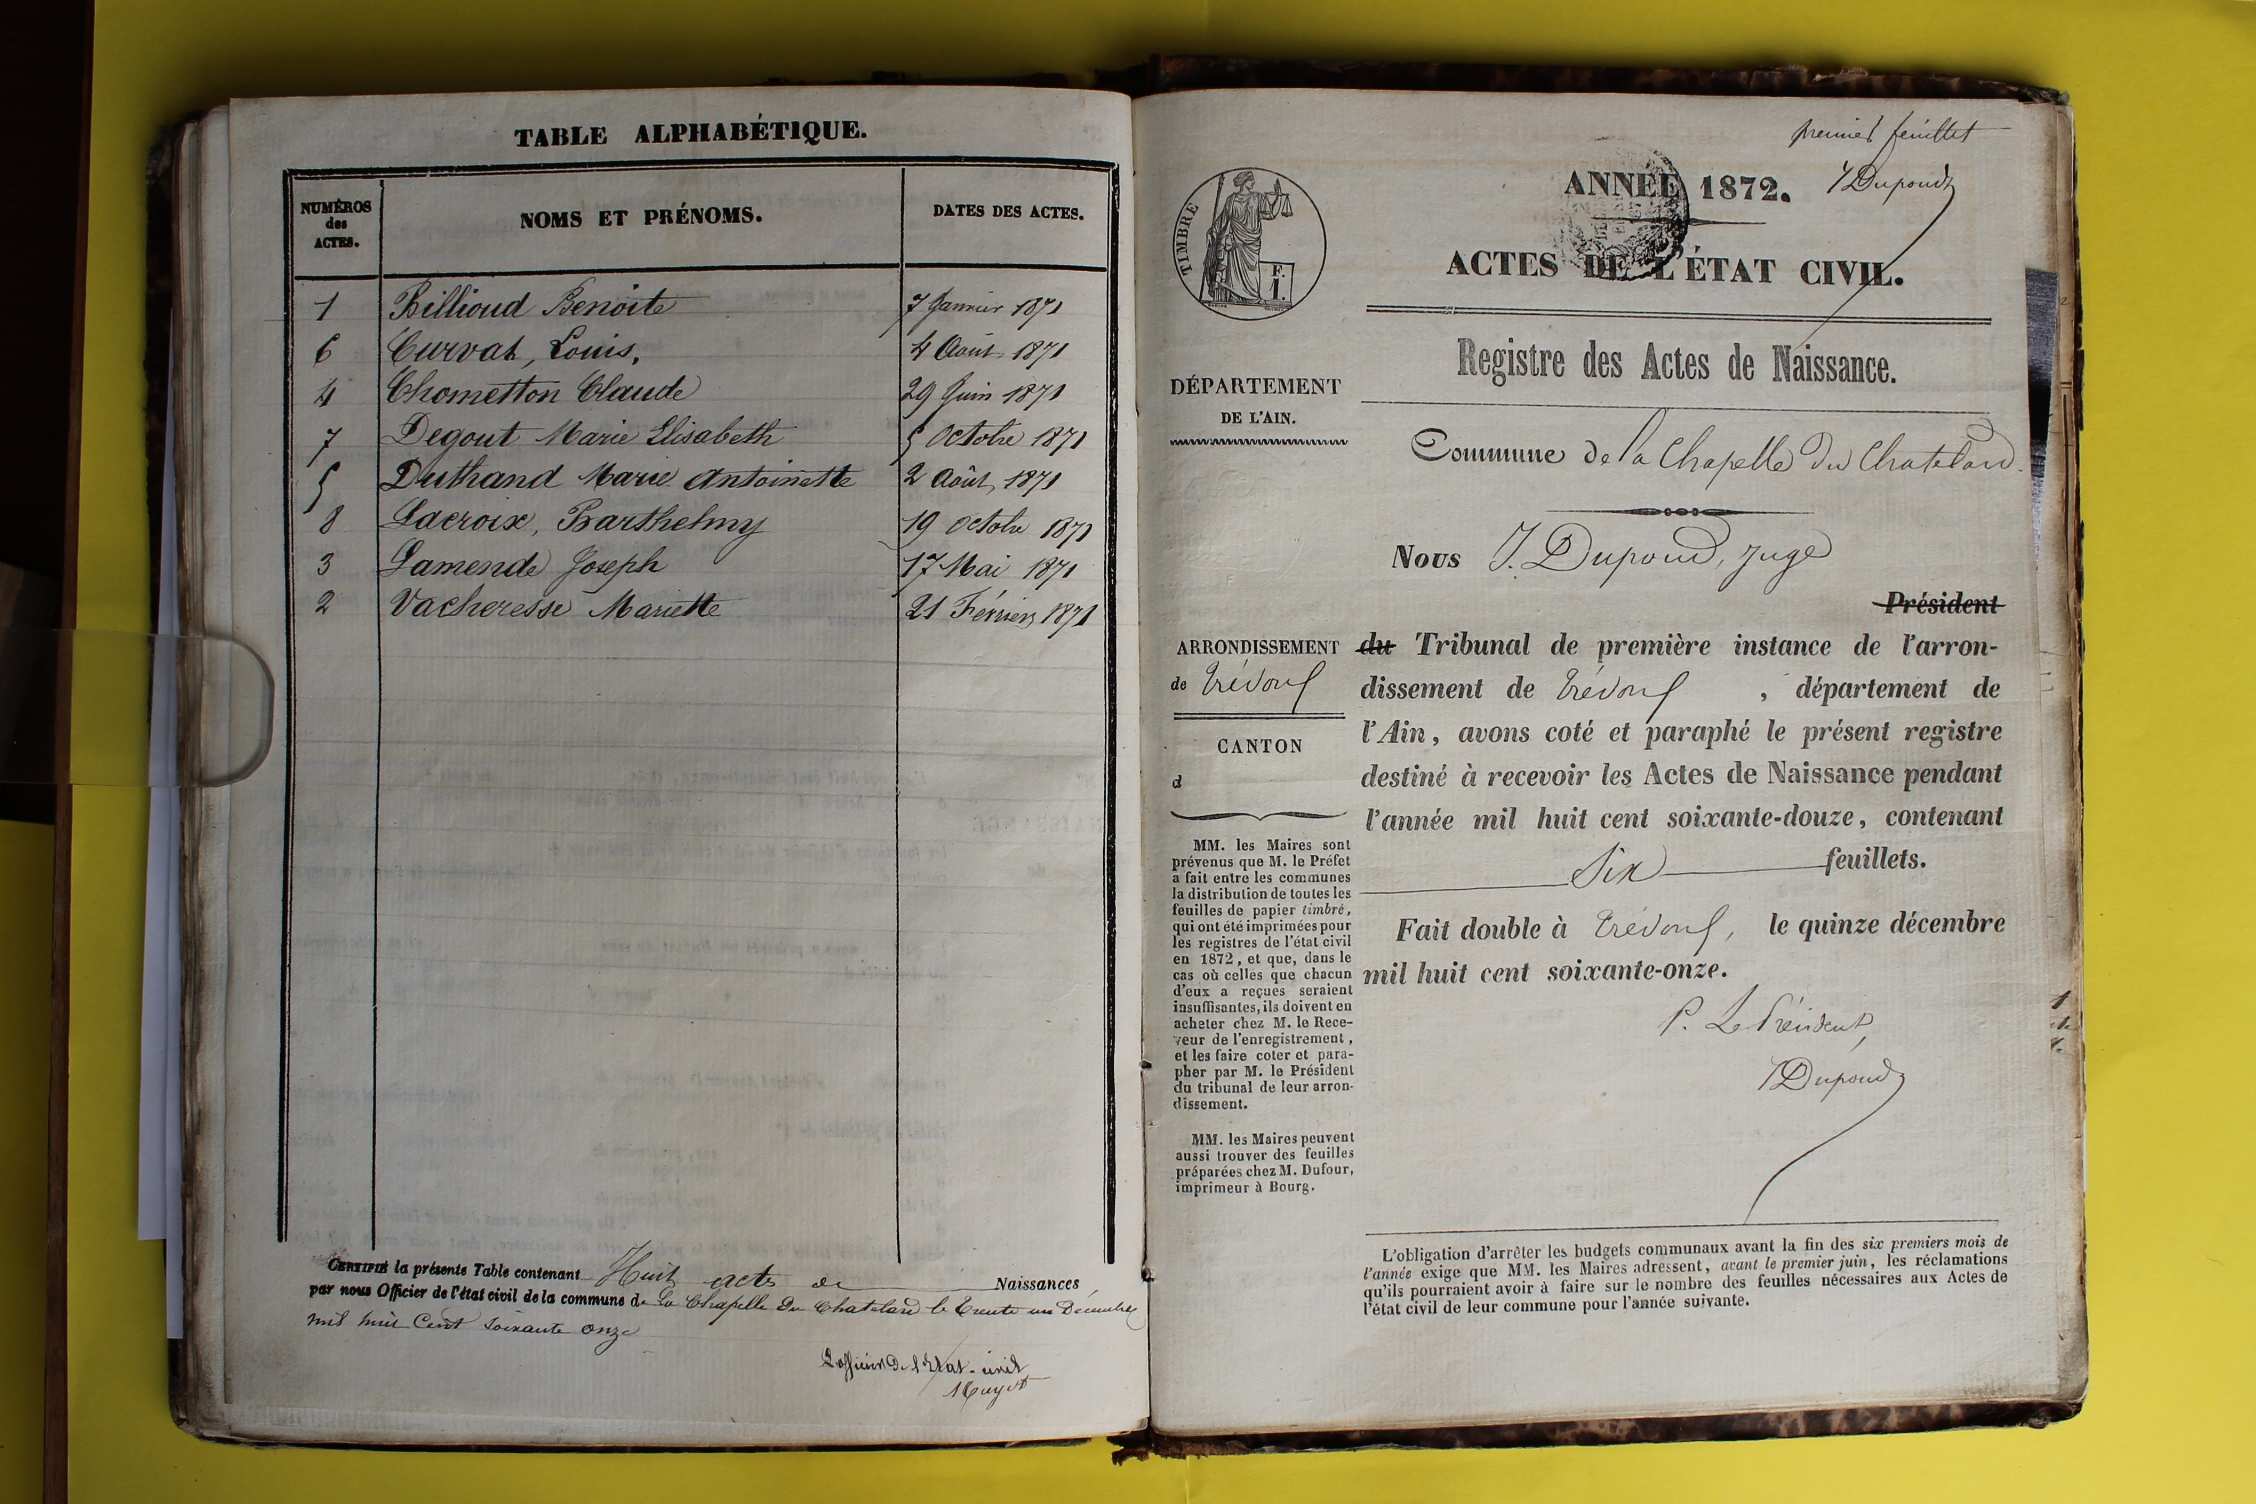 TABLE ALPHABÉTIQUE.
NUMÉROS des ACTES. NOMS ET PRÉNOMS. DATES DES ACTES.
1 Billioud Benoite 7 Janvier 1871
6 Curvat, Louis, 4 Août 1871
4 Chometton Claude 29 Juin 1871
7 Degout Marie Elisabeth 5 Octobre 1871
5 Duthand Marie Antoinette 2 Août, 1871
8 Lacroix, Barthelmy 19 octobre 1871
3 Lamende Joseph 17 Mai 1871
2 Vacheresse Mariette 21 Février 1871
CERTIFIÉ la présente Table contenant Huit actes de Naissances
par nous Officier de l'état civil de la commune de La Chapelle du Chatelard le trente un Décembre
mil huit Cent soixante onze
L'officier de l'Etat-civil
premier feuillet
ANNÉE 1872. J Dupoud
TIMBRE
F.
I.
ACTES DE L'ÉTAT CIVIL.
Registre des Actes de Naissance.
DÉPARTEMENT
DE L'AIN.
Commune de la Chapelle du Chatelard
Nous J. Dupoud, juge
Président
ARRONDISSEMENT
de Trévoux
CANTON
d
du Tribunal de première instance de l'arron-
dissement de Trévoux, département de
l'Ain, avons coté et paraphé le présent registre
destiné à recevoir les Actes de Naissance pendant
l'année mil huit cent soixante-douze, contenant
Six feuillets.
Fait double à Trévoux, le quinze décembre
mil huit cent soixante-onze.
P. Le Président,
J Dupoud
MM. les Maires sont
prévenus que M. le Préfet
a fait entre les communes
la distribution de toutes les
feuilles de papier timbré,
qui ont été imprimées pour
les registres de l'état civil
en 1872, et que, dans le
cas où celles que chacun
d'eux a reçues seraient
insuffisantes, ils doivent en
acheter chez M. le Rece-
veur de l'enregistrement,
et les faire coter et para-
pher par M. le Président
du tribunal de leur arron-
dissement.
MM. les Maires peuvent
aussi trouver des feuilles
préparées chez M. Dufour,
imprimeur à Bourg.
L'obligation d'arrêter les budgets communaux avant la fin des six premiers mois de
l'année exige que MM. les Maires adressent, avant le premier juin, les réclamations
qu'ils pourraient avoir à faire sur le nombre des feuilles nécessaires aux Actes de
l'état civil de leur commune pour l'année suivante.